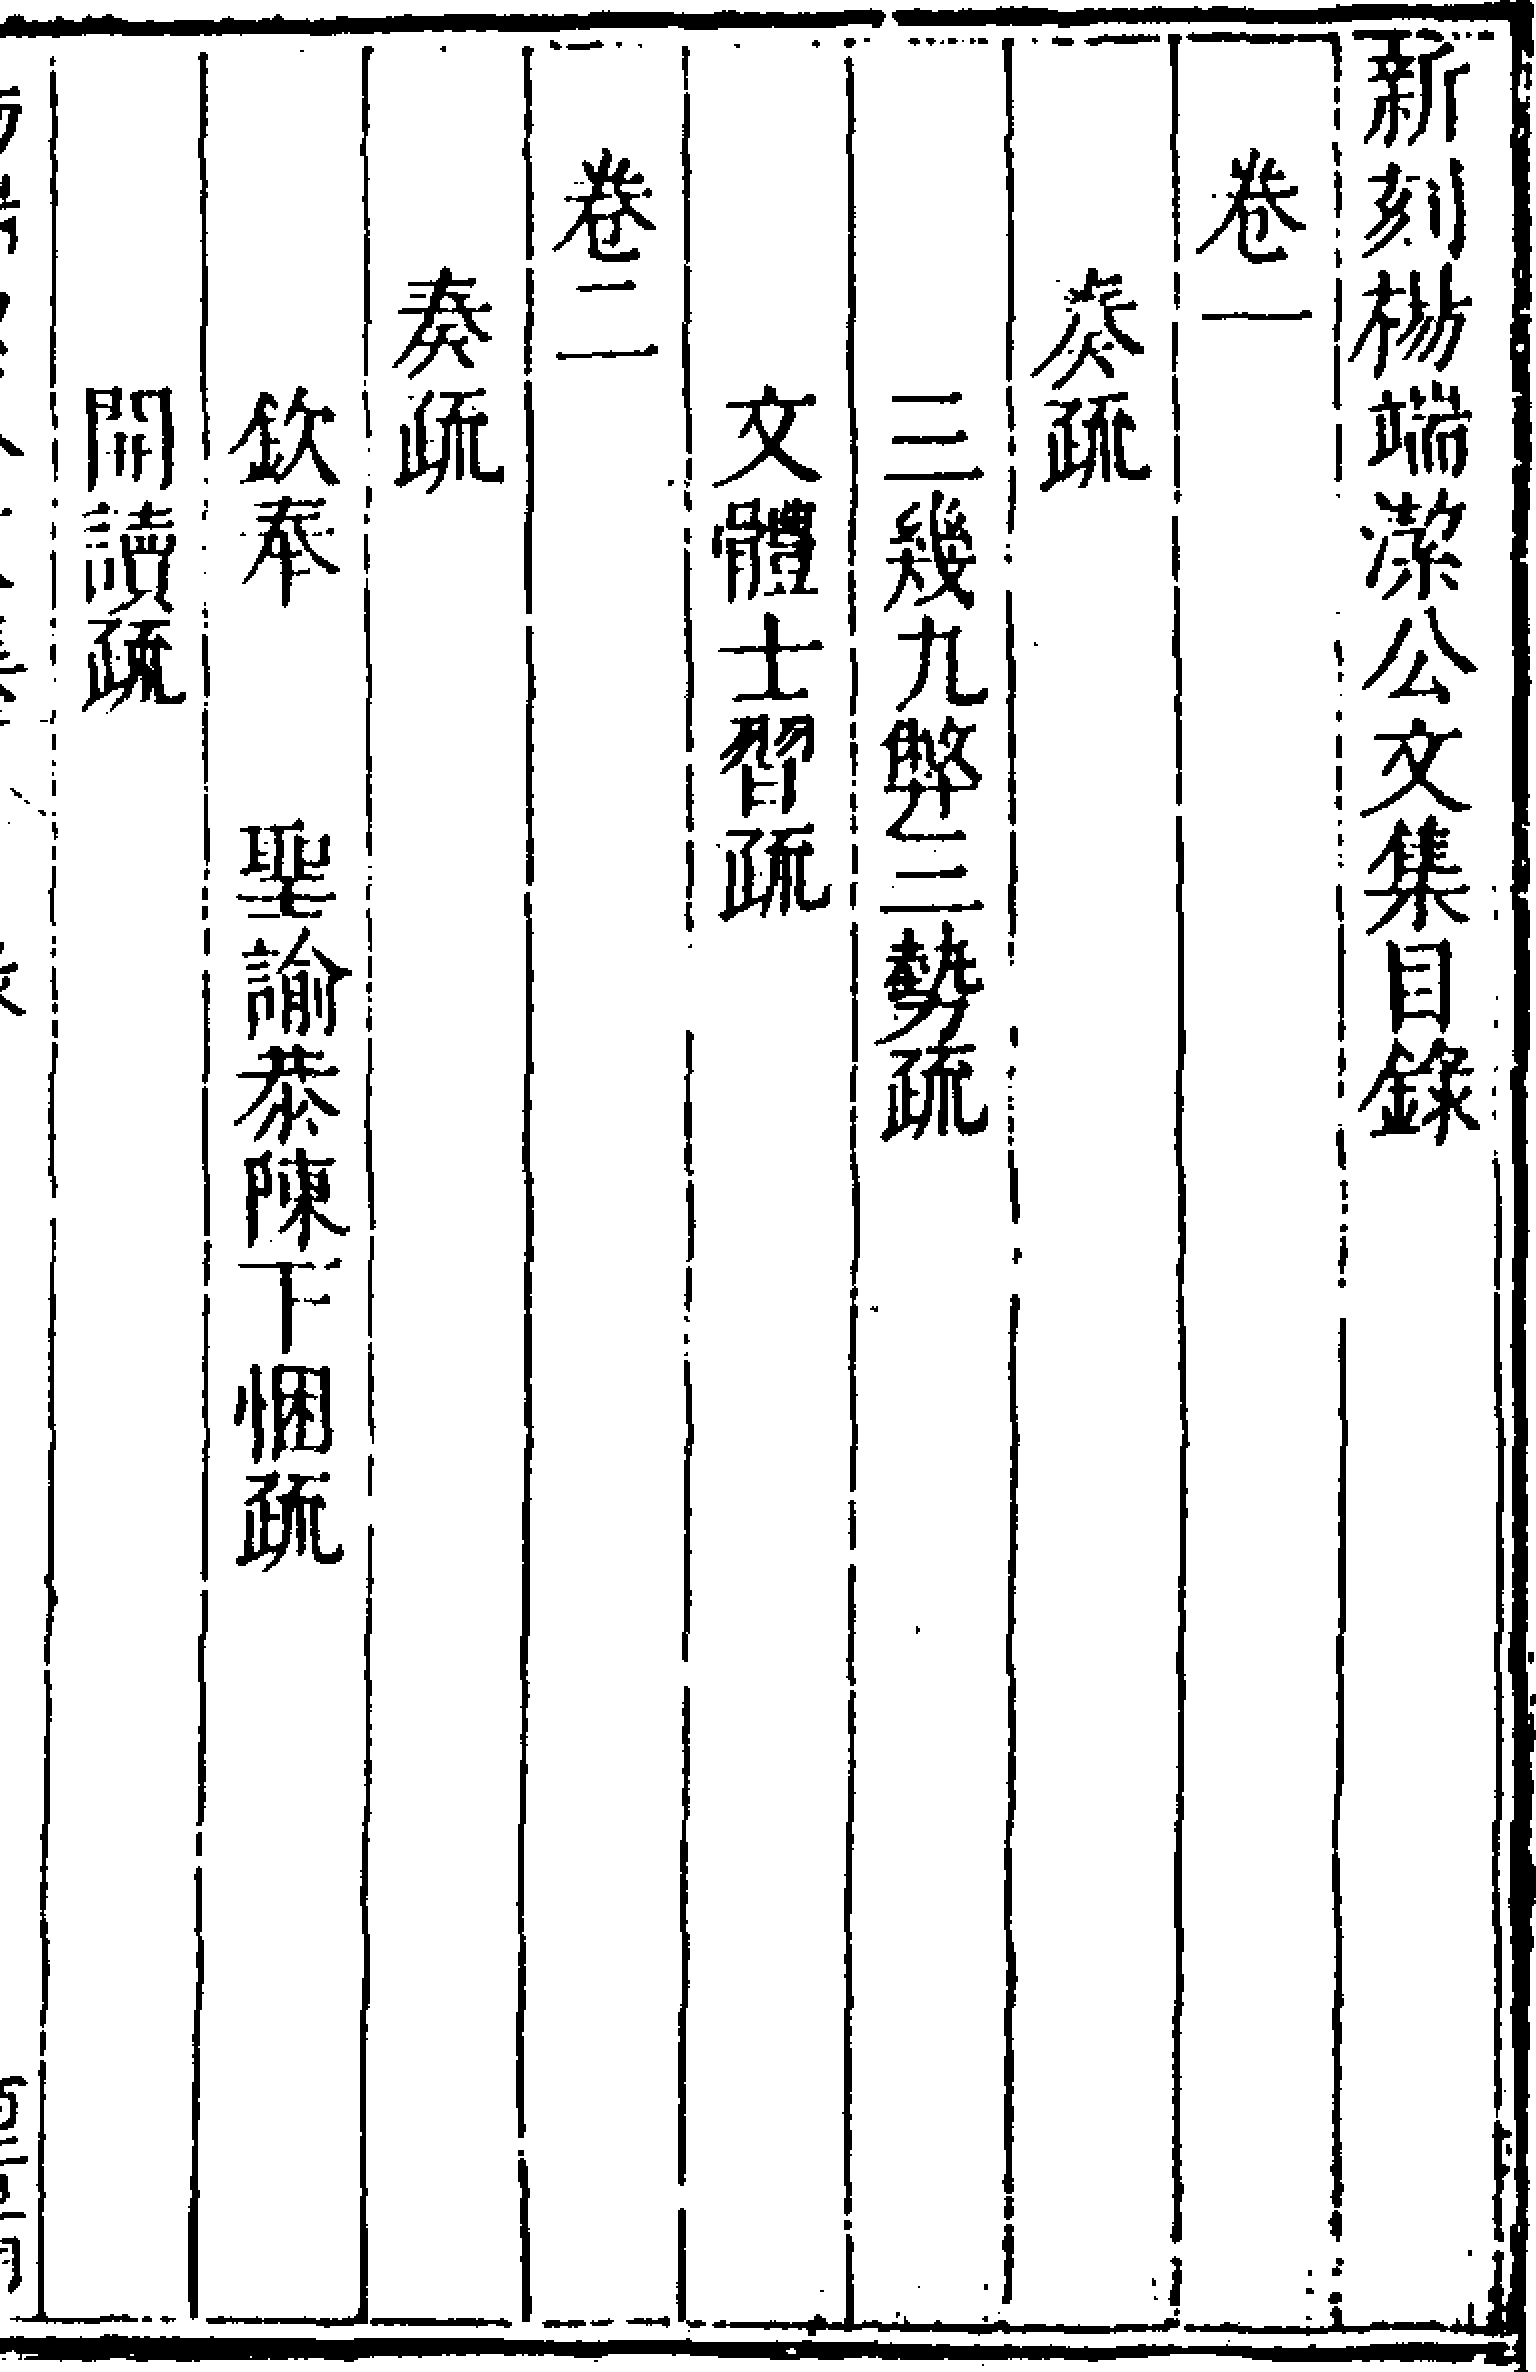 新刻楊端潔公文集目錄
卷一
奏疏
三幾九弊三勢疏
文體士習疏
卷二
奏疏
欽奉 聖諭恭陳下悃疏
開讀疏